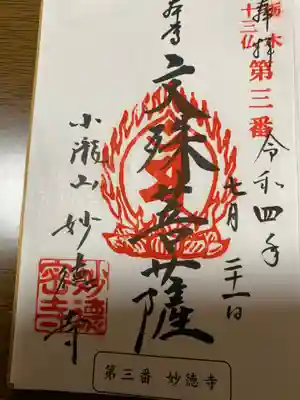 奉拝
栃木
十三仏
第三番
令和四年
七月二十一日
本尊
文殊菩薩
小瀧山
妙徳寺
妙徳密寺
第三番 妙徳寺